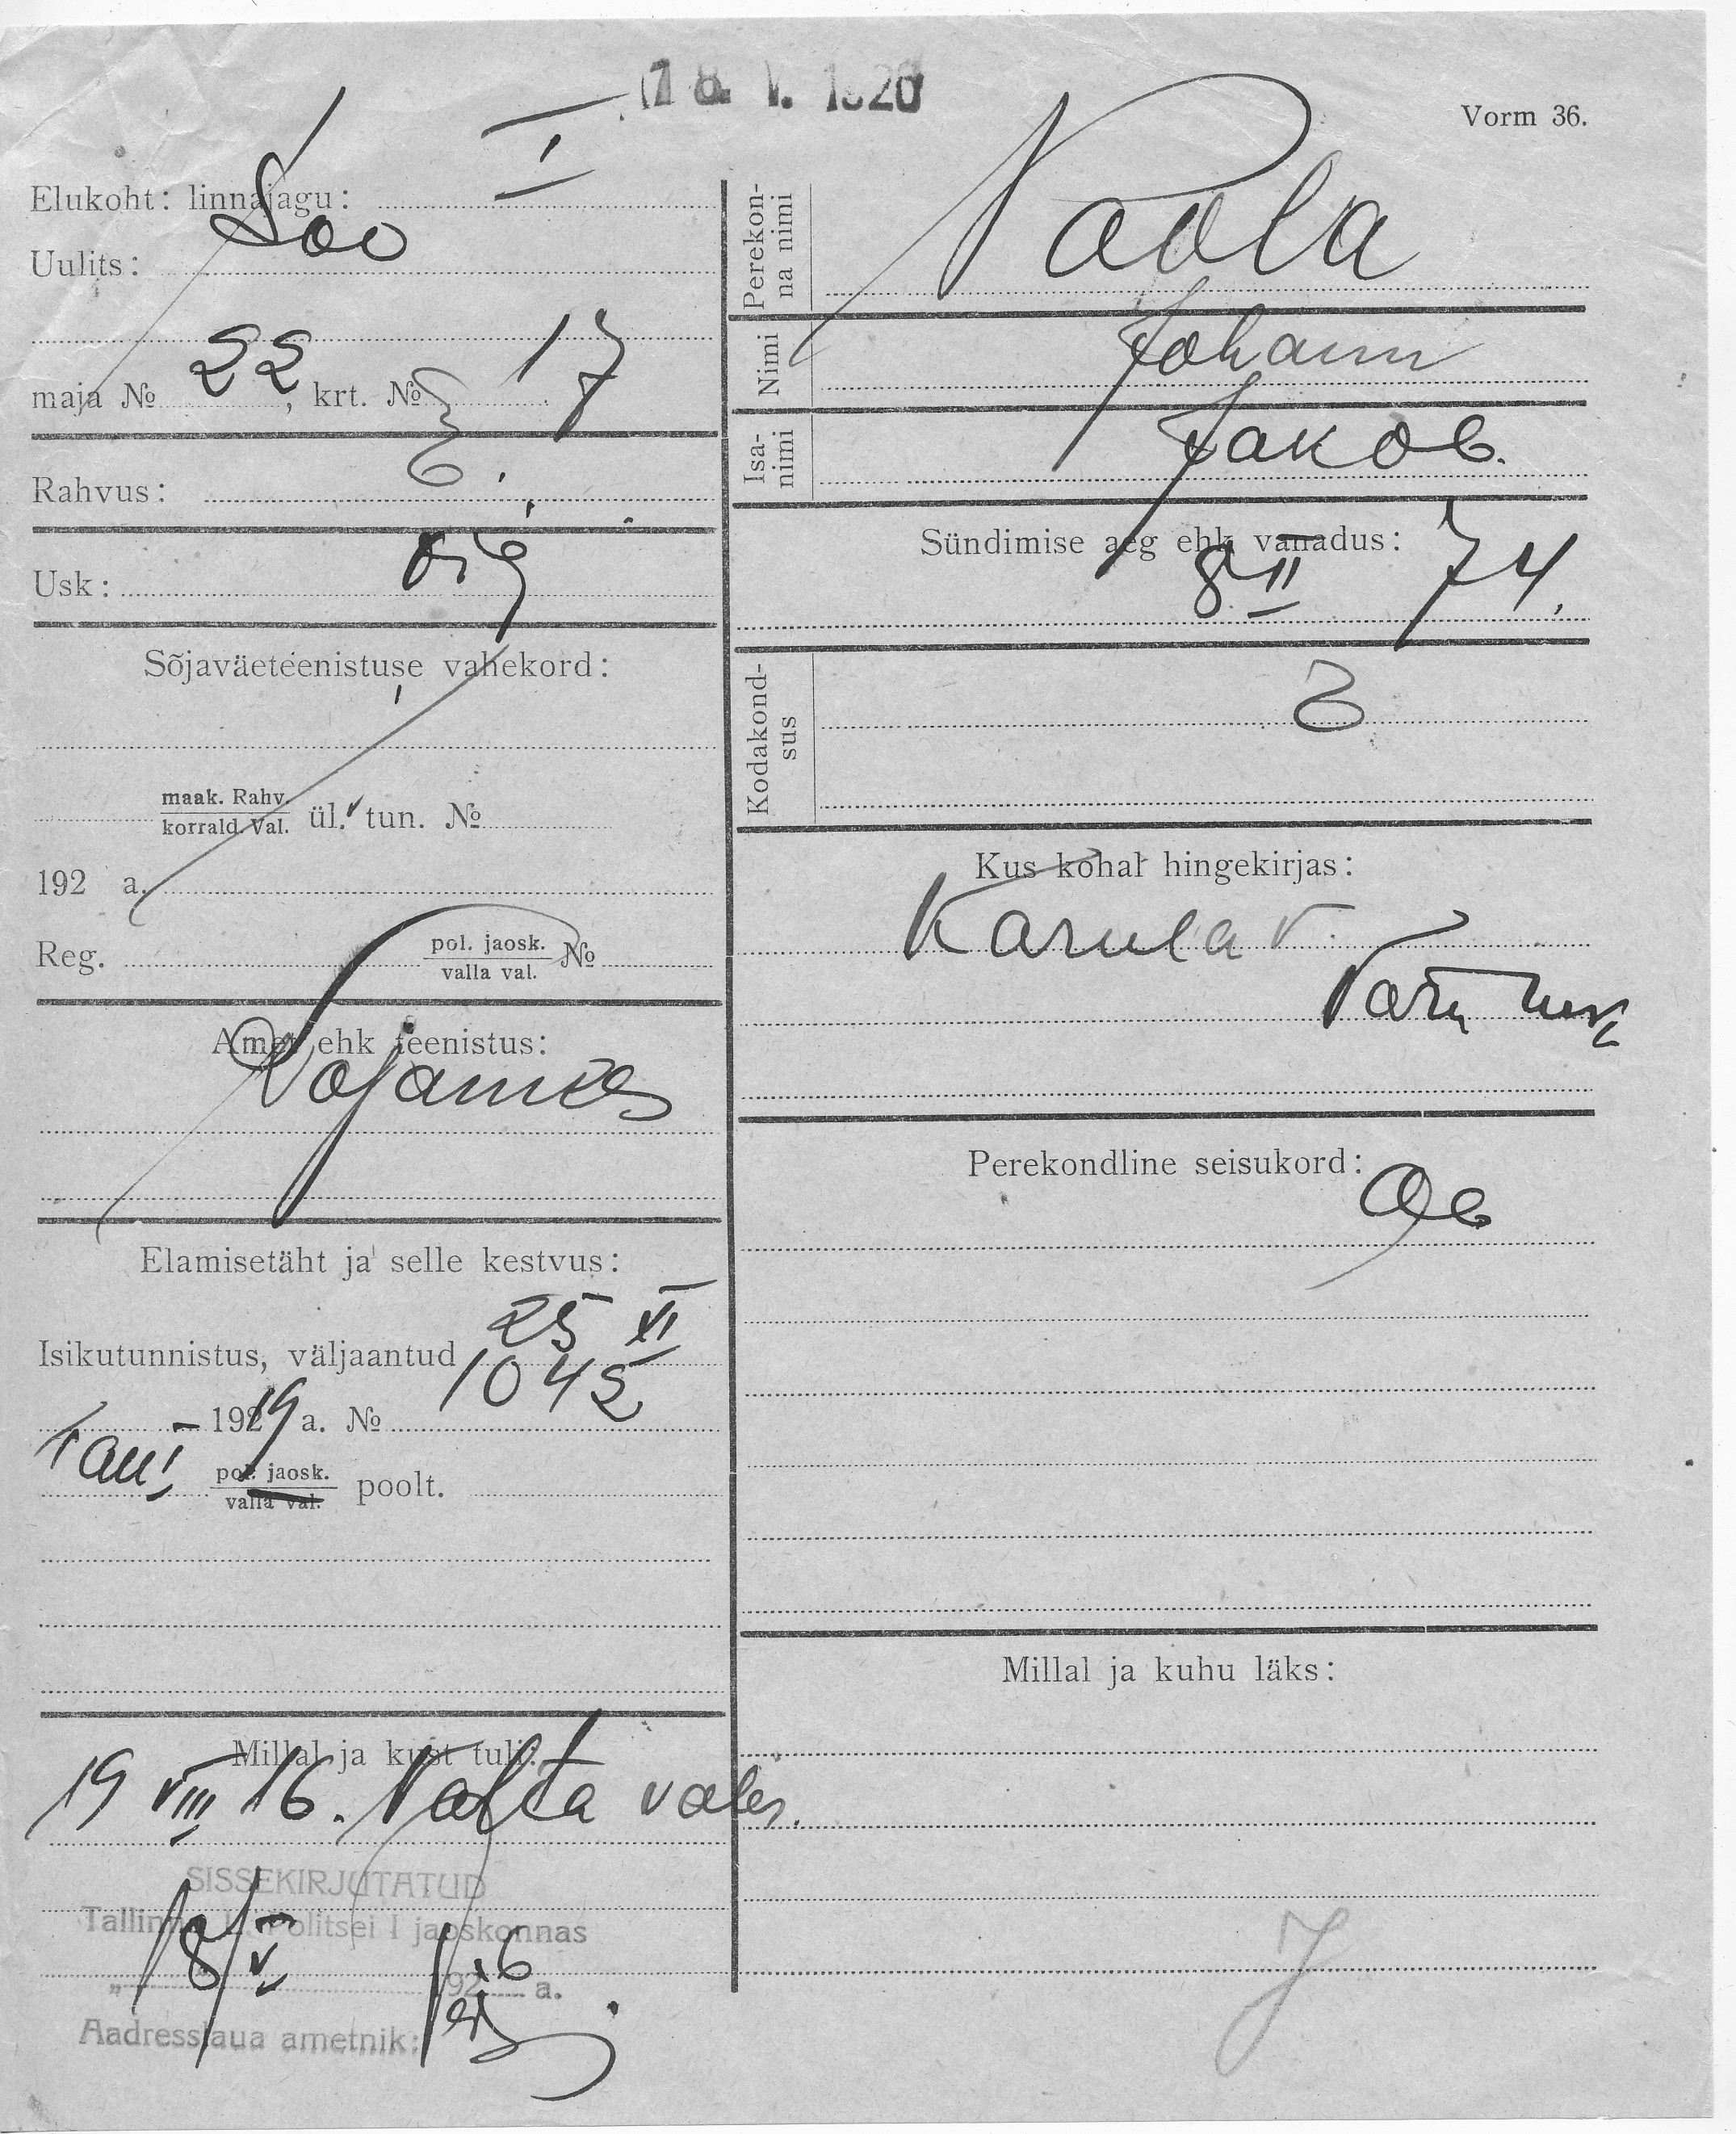 18. V. 1926
Vorm 36.
Elukoht: linnajagu: I
Uulits: Soo
maja № 22, krt. № 17
Rahvus: E.
Usk: õig
Sõjaväeteenistuse vahekord:
maak. Rahv.
korrald. Val. ül. tun. №
192 a.
Reg. pol. jaosk. №
valla val.
Amet ehk teenistus:
Elamisetäht ja selle kestvus:
Isikutunnistus, väljaantud 25 XI
1919 a. № 1042
pol. jaosk.
valla val. poolt.
Millal ja kust tuli:
19 VIII 16.
SISSEKIRJUTATUD
Tallinna Politsei I jaoskonnas
18 V 1926 a.
Aadresslaua ametnik:
Perekon-
na nimi
Nimi Johann
Isa-
nimi Jakob.
Sündimise aeg ehk vanadus:
8 II 74.
Kodakond-
sus E
Kus kohal hingekirjas:
Karula v.
Perekondline seisukord:
Ab
Millal ja kuhu läks: